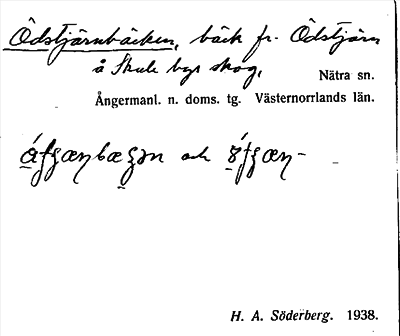 Ödstjärnbäcken, bäck fr. Ödstjärn
å Skule bys skog,
Nätra sn.
Ångermanl. n. doms. tg. Västernorrlands län.
och
H. A. Söderberg. 1938.